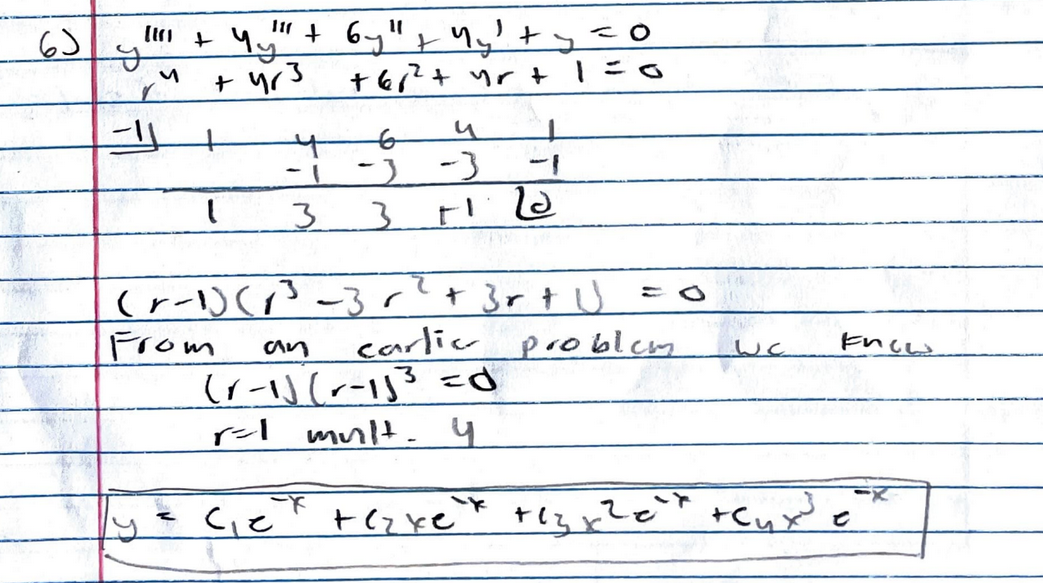 6) y'''' + 4y''' + 6y'' + 4y' + y = 0
r⁴ + 4r³ + 6r² + 4r + 1 = 0
-1| 1 4 6 4 1
-1 -3 -3 -1
1 3 3 +1 |0
(r-1)(r³ - 3r² + 3r + 1) = 0
From an earlier problem we know
(r-1)(r-1)³ = 0
r=1 mult. 4
y = c₁e⁻ˣ + c₂xe⁻ˣ + c₃x²e⁻ˣ + c₄x³e⁻ˣ